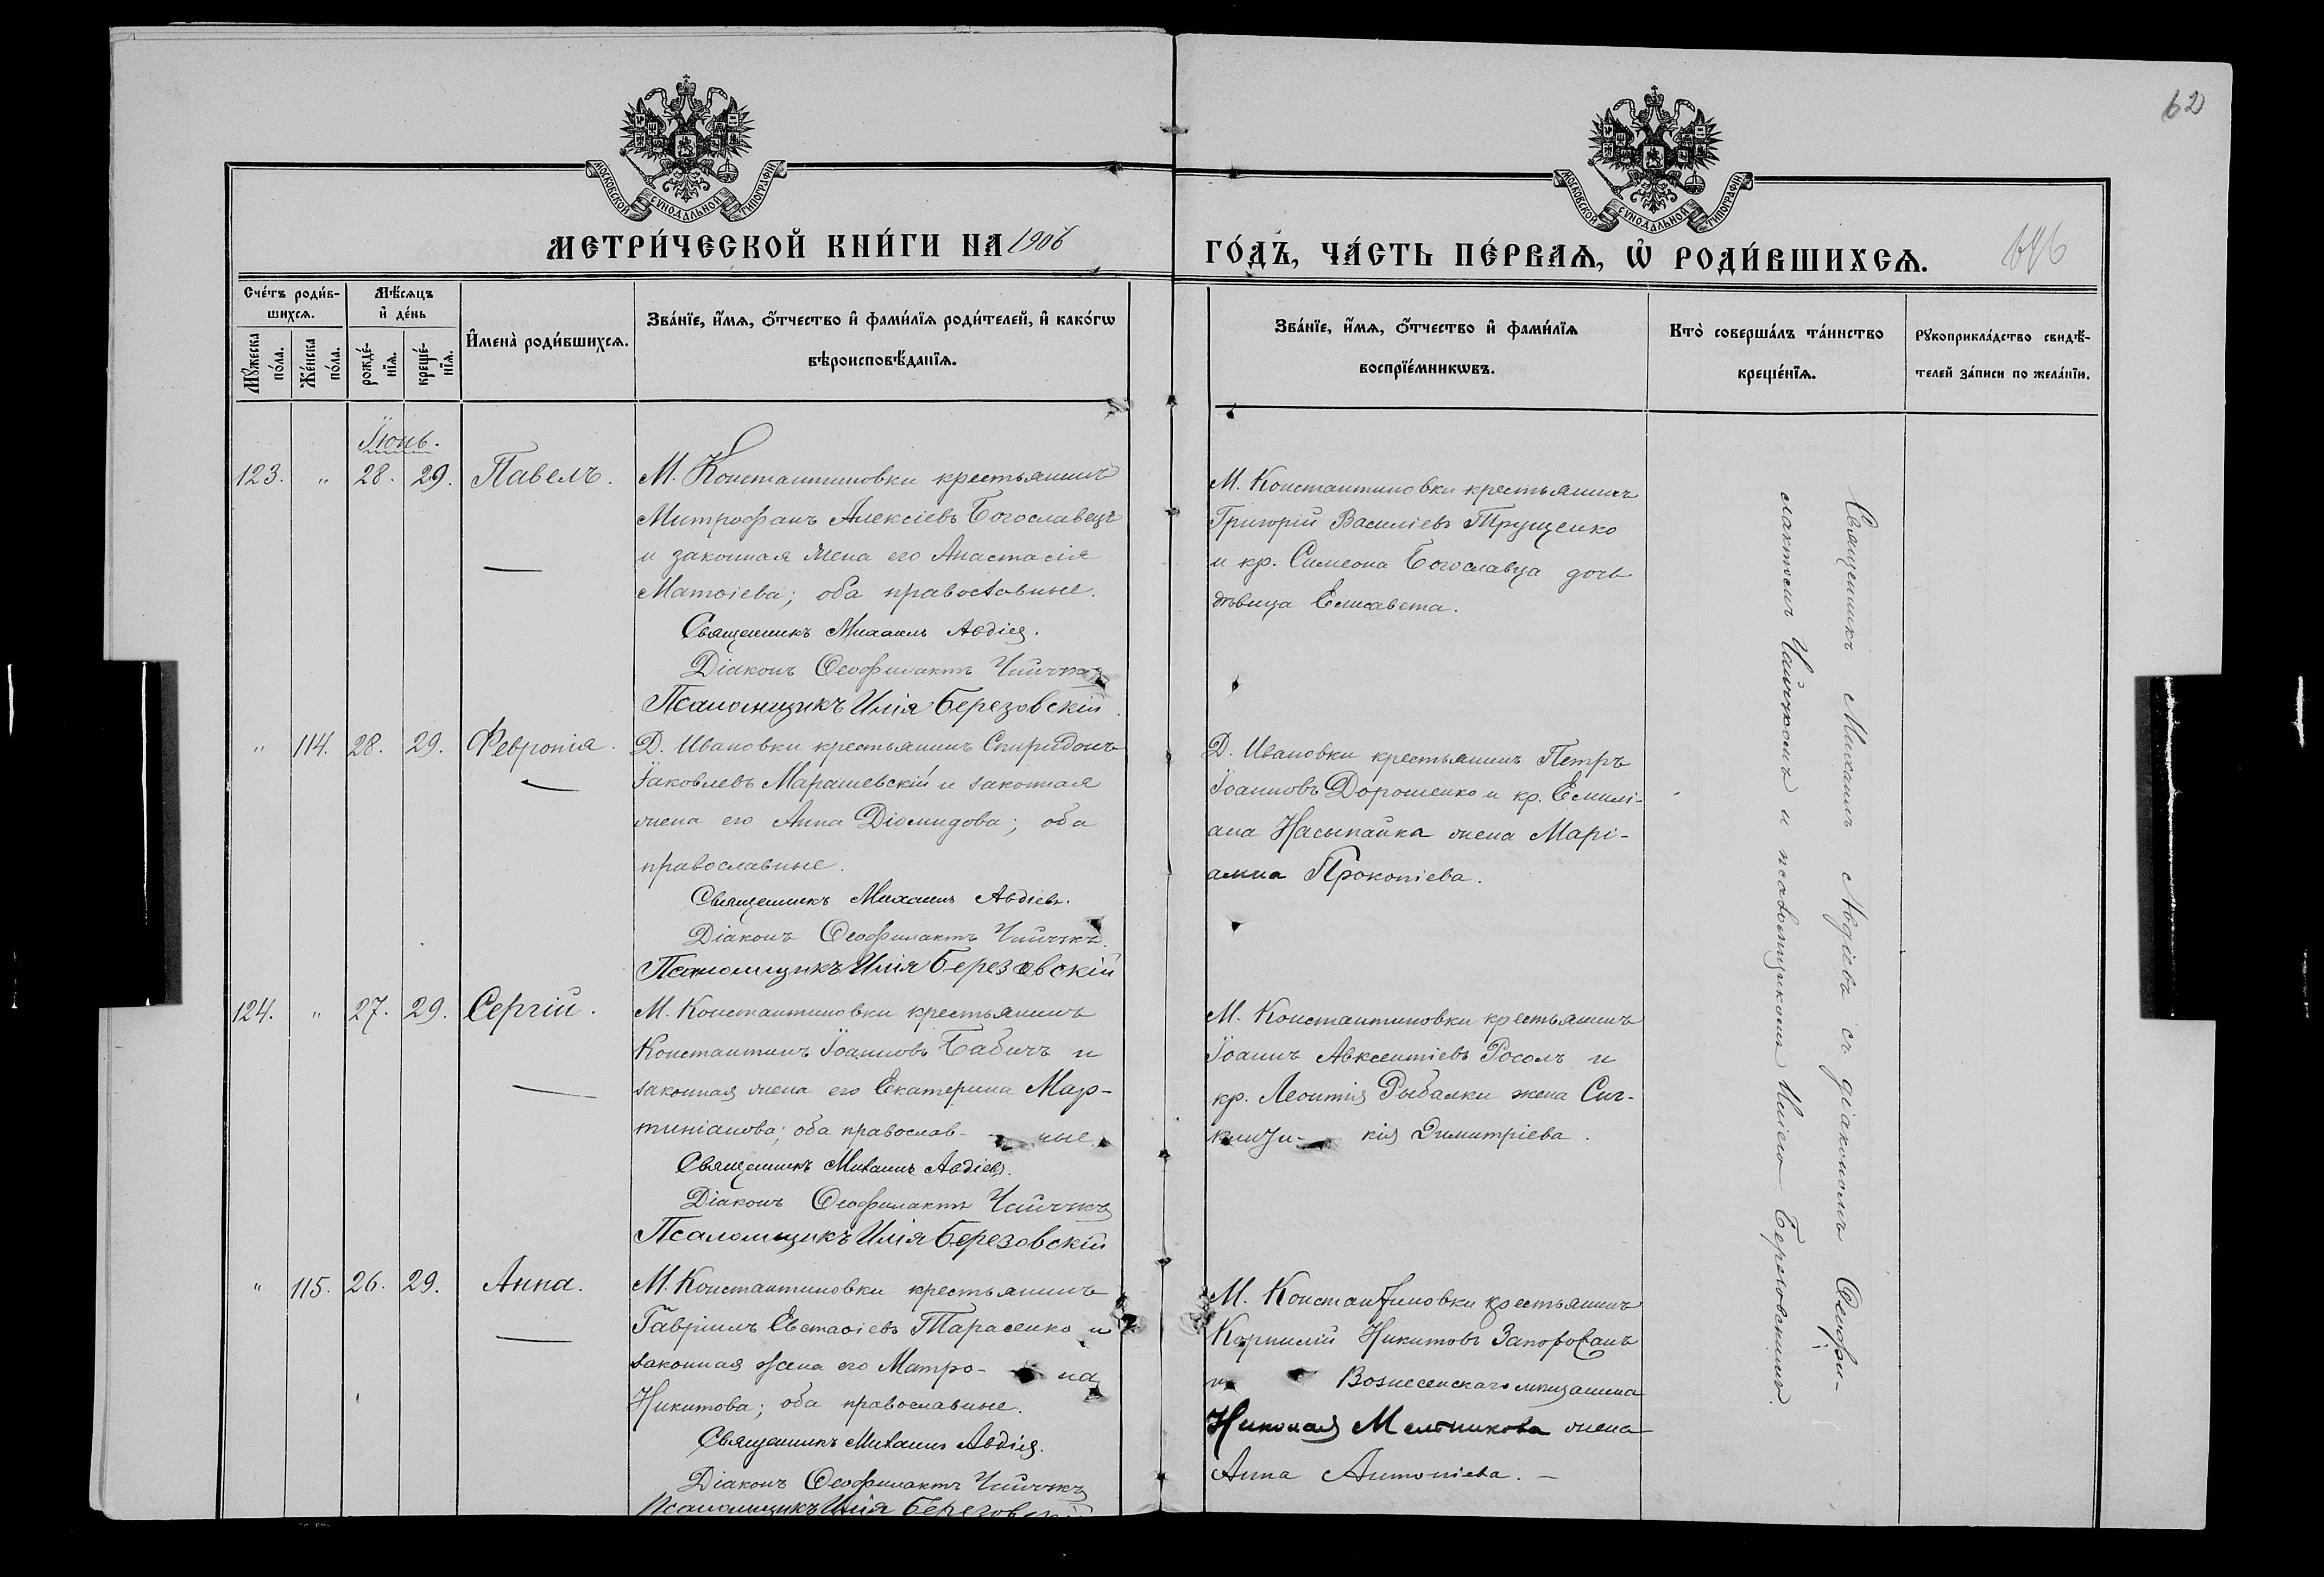 62
МОСКОВСКОЙ СѴНОДАЛЬНОЙ ТИПОГРАФІИ
МОСКОВСКОЙ СѴНОДАЛЬНОЙ ТИПОГРАФІИ
МЕТРИ́ЧЕСКОЙ КНИ́ГИ НА 1906
ГО́ДЪ, ЧА́СТЬ ПЕ́РВАѦ, Ѡ҆ РОДИ́ВШИХСѦ.
Сче́тъ роди́в-
шихсѧ.
Мꙋжеска по́ла.
Же́нска по́ла.
Мѣ́сѧцъ
и҆ де́нь
рожде́-
нїѧ.
креще́-
нїѧ.
И҆мена̀ роди́вшихсѧ.
Зва́нїе, и҆́мѧ, ѻ҆́тчество и҆ фами́лїѧ роди́телей, и҆ како́гѡ
вѣроисповѣ́данїѧ.
Зва́нїе, и҆́мѧ, ѻ҆́тчество и҆ фами́лїѧ
воспрїе́мникѡвъ.
Кто̀ соверша́лъ та́инство
креще́нїѧ.
Рꙋкоприкла́дство свидѣ́-
телей за́писи по жела́нїю.
Іюнь.
123. " 28. 29. Павелъ.
М. Константиновки крестьянинъ
Митрофанъ Алексіевъ Богославецъ
и законная жена его Анастасія
Матѳіева; оба православные.
Священникъ Михаилъ Авдіев.
Діаконъ Ѳеофилактъ Чайчукъ
Псаломщикъ Илія Березовскій
М. Константиновки крестьянинъ
Григорій Василіевъ Трущенко
и кр. Симеона Богославца дочь
дѣвица Елисавета.
" 114. 28. 29. Февронія.
Д. Ивановки крестьянинъ Спиридонъ
Іаковлевъ Марашевскій и законная
жена его Анна Діомидова; оба
православные.
Священникъ Михаилъ Авдіевъ.
Діаконъ Ѳеофилактъ Чайчукъ.
Псаломщикъ Илія Березовскій
Д. Ивановки крестьянинъ Петръ
Іоанновъ Дорошенко и кр. Емилі-
ана Насыпайка жена Марі-
амна Прокопіева.
124. " 27. 29. Сергій.
М. Константиновки крестьянинъ
Константинъ Іоанновъ Бабичъ и
законная жена его Екатерина Мар-
тиніанова; оба православ- ные.
Священникъ Михаилъ Авдіевъ.
Діаконъ Ѳеофилактъ Чайчукъ
Псаломщикъ Илія Березовскій
М. Константиновки крестьянинъ
Іоаннъ Авксентіевъ Росолъ и
кр. Леонтія Рыбалки жена Син-
кли- кія Димитріева.
" 115. 26. 29. Анна.
М. Константиновки крестьянинъ
Гавріилъ Евстаѳіевъ Тарасенко и
законная жена его Матро- на
Никитова; оба православные.
Священникъ Михаилъ Авдіев.
Діаконъ Ѳеофилактъ Чайчукъ
Псаломщикъ Илія Березовскій
М. Константиновки крестьянинъ
Корнилій Никитовъ Запорожанъ
и Вознесенскаго мѣщанина
Николая Мельникова жена
Анна Антоніева. —
Священникъ Михаилъ Авдіевъ съ діакономъ Ѳеофи-
лактомъ Чайчукомъ и псаломщикомъ Иліею Березовскимъ.